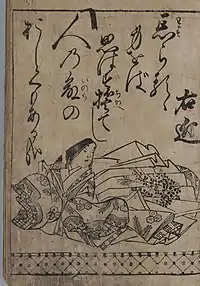 右近
忘らるゝ
身をば
思はず
誓てし
人の命の
おしくもあるかな